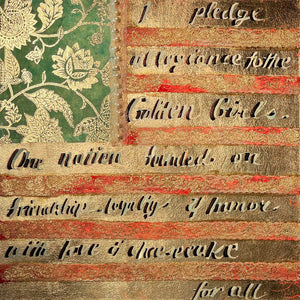 I pledge
allegiance to the
Golden Girls.
One nation founded on
friendship loyalty & humor.
with love & cheesecake
for all